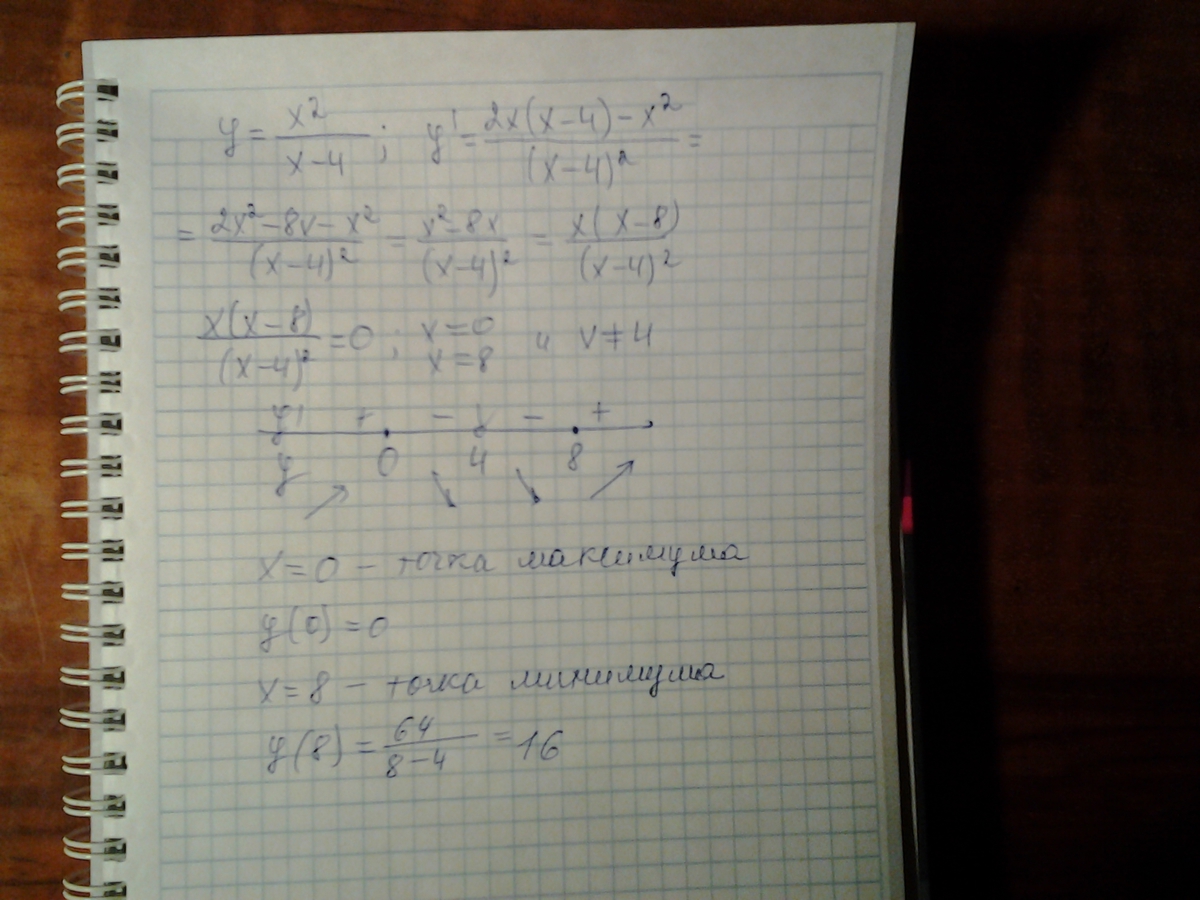 y = x²/(x-4) ; y' = (2x(x-4)-x²)/(x-4)² =
= (2x²-8x-x²)/(x-4)² = (x²-8x)/(x-4)² = x(x-8)/(x-4)²
x(x-8)/(x-4)² = 0 ; x=0 x=8 и x≠4
y' + - - +
y 0 4 8
↗ ↘ ↘ ↗
x=0 - точка максимума
y(0)=0
x=8 - точка минимума
y(8) = 64/(8-4) = 16